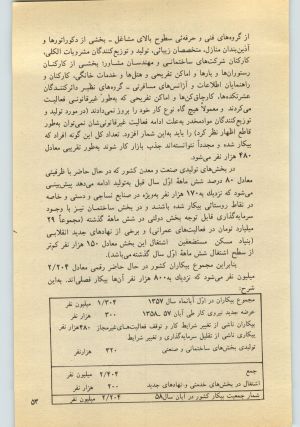 از گروه‌های فنی و حرفه‌ئی سطوح بالای مشاغل ـ بخشی از دکوراتورها و
آذین‌بندان منازل، متخصصان زیبائی، تولید و توزیع‌کنندگان مشروبات الکلی،
کارکنان شرکت‌های ساختمانی و مهندسان مشاور؛ بخشی از کارکنان
رستوران‌ها و بارها و اماکن تفریحی و هتل‌ها و خدمات خانگی، کارکنان و
راهنمایان اطلاعات و آژانس‌های مسافرتی ـ گروه‌های نظیر دائرکنندگان
عشرتکده‌ها، کارچاق‌کن‌ها و اماکن تفریحی که به‌طور غیرقانونی فعالیت
می‌کردند و معمولاً هیچ گاه نوع کار خود را بروز نمی‌دادند (در مورد تولید و
توزیع‌کنندگان موادمخدر به‌علت ادامه فعالیت غیرقانونی‌شان نمی‌توان به‌طور
قاطع اظهار نظر کرد) را باید به‌این شمار افزود. تعداد کل این گونه افراد که
بیکار شده و مجدداً نتوانسته‌اند جذب بازار کار شوند به‌طور تقریبی معادل
۴۸۰ هزار نفر می‌شود.
در بخش‌های تولیدی صنعت و معدن کشور که در حال حاضر با ظرفیتی
معادل ۸۰ درصد شش ماههٔ اوّل سال قبل به‌تولید ادامه می‌دهد پیش‌بینی
می‌شود که نزدیك به ۱۷۰ هزار نفر به‌ویژه در صنایع نساجی و دستی و خاصه
در نقاط روستائی بیکار شده باشند و در بخش ساختمان نیز با وجود
سرمایه‌گذاری قابل توجه بخش دولتی در شش ماههٔ گذشته (مجموعاً ۲۹
میلیارد تومان در فعالیت‌های عمرانی) و برخی از نهادهای جدید انقلابی
(بنیاد مسکن مستضعفین) اشتغال این بخش معادل ۱۵۰ هزار نفر کم‌تر
از سطح اشتغال شش ماههٔ اوّل سال گذشته می‌باشد).
بنابراین مجموع بیکاران کشور در حال حاضر رقمی معادل ۲/۲۰۴
میلیون نفر می‌شود که نزدیك به ۸۰۰ هزار نفر آن‌ها بیکار فصلی‌اند. به‌این
شرح:
مجموع بیکاران در اوّل آبانماه سال ۱۳۵۷ ۱/۳۰۴ میلیون نفر
عرضه جدید نیروی کار طی آبان ۵۷ ـ ۱۳۵۸ ۳۰۰ هزار نفر
بیکاران ناشی از تغییر شرایط کار و توقف فعالیت‌های غیرمجاز ۴۸۰ هزار نفر
بیکاری ناشی از تقلیل سرمایه‌گذاری و تغییر شرایط
تولیدی بخش‌های ساختمانی و صنعتی ۳۲۰ هزار نفر
جمع ۲/۴۰۴ میلیون نفر
اشتغال در بخش‌های خدمتی و نهادهای جدید ۲۰۰ هزار نفر
شمار جمعیت بیکار کشور در آبان سال ۵۸ ۲/۲۰۴ میلیون نفر
۵۳